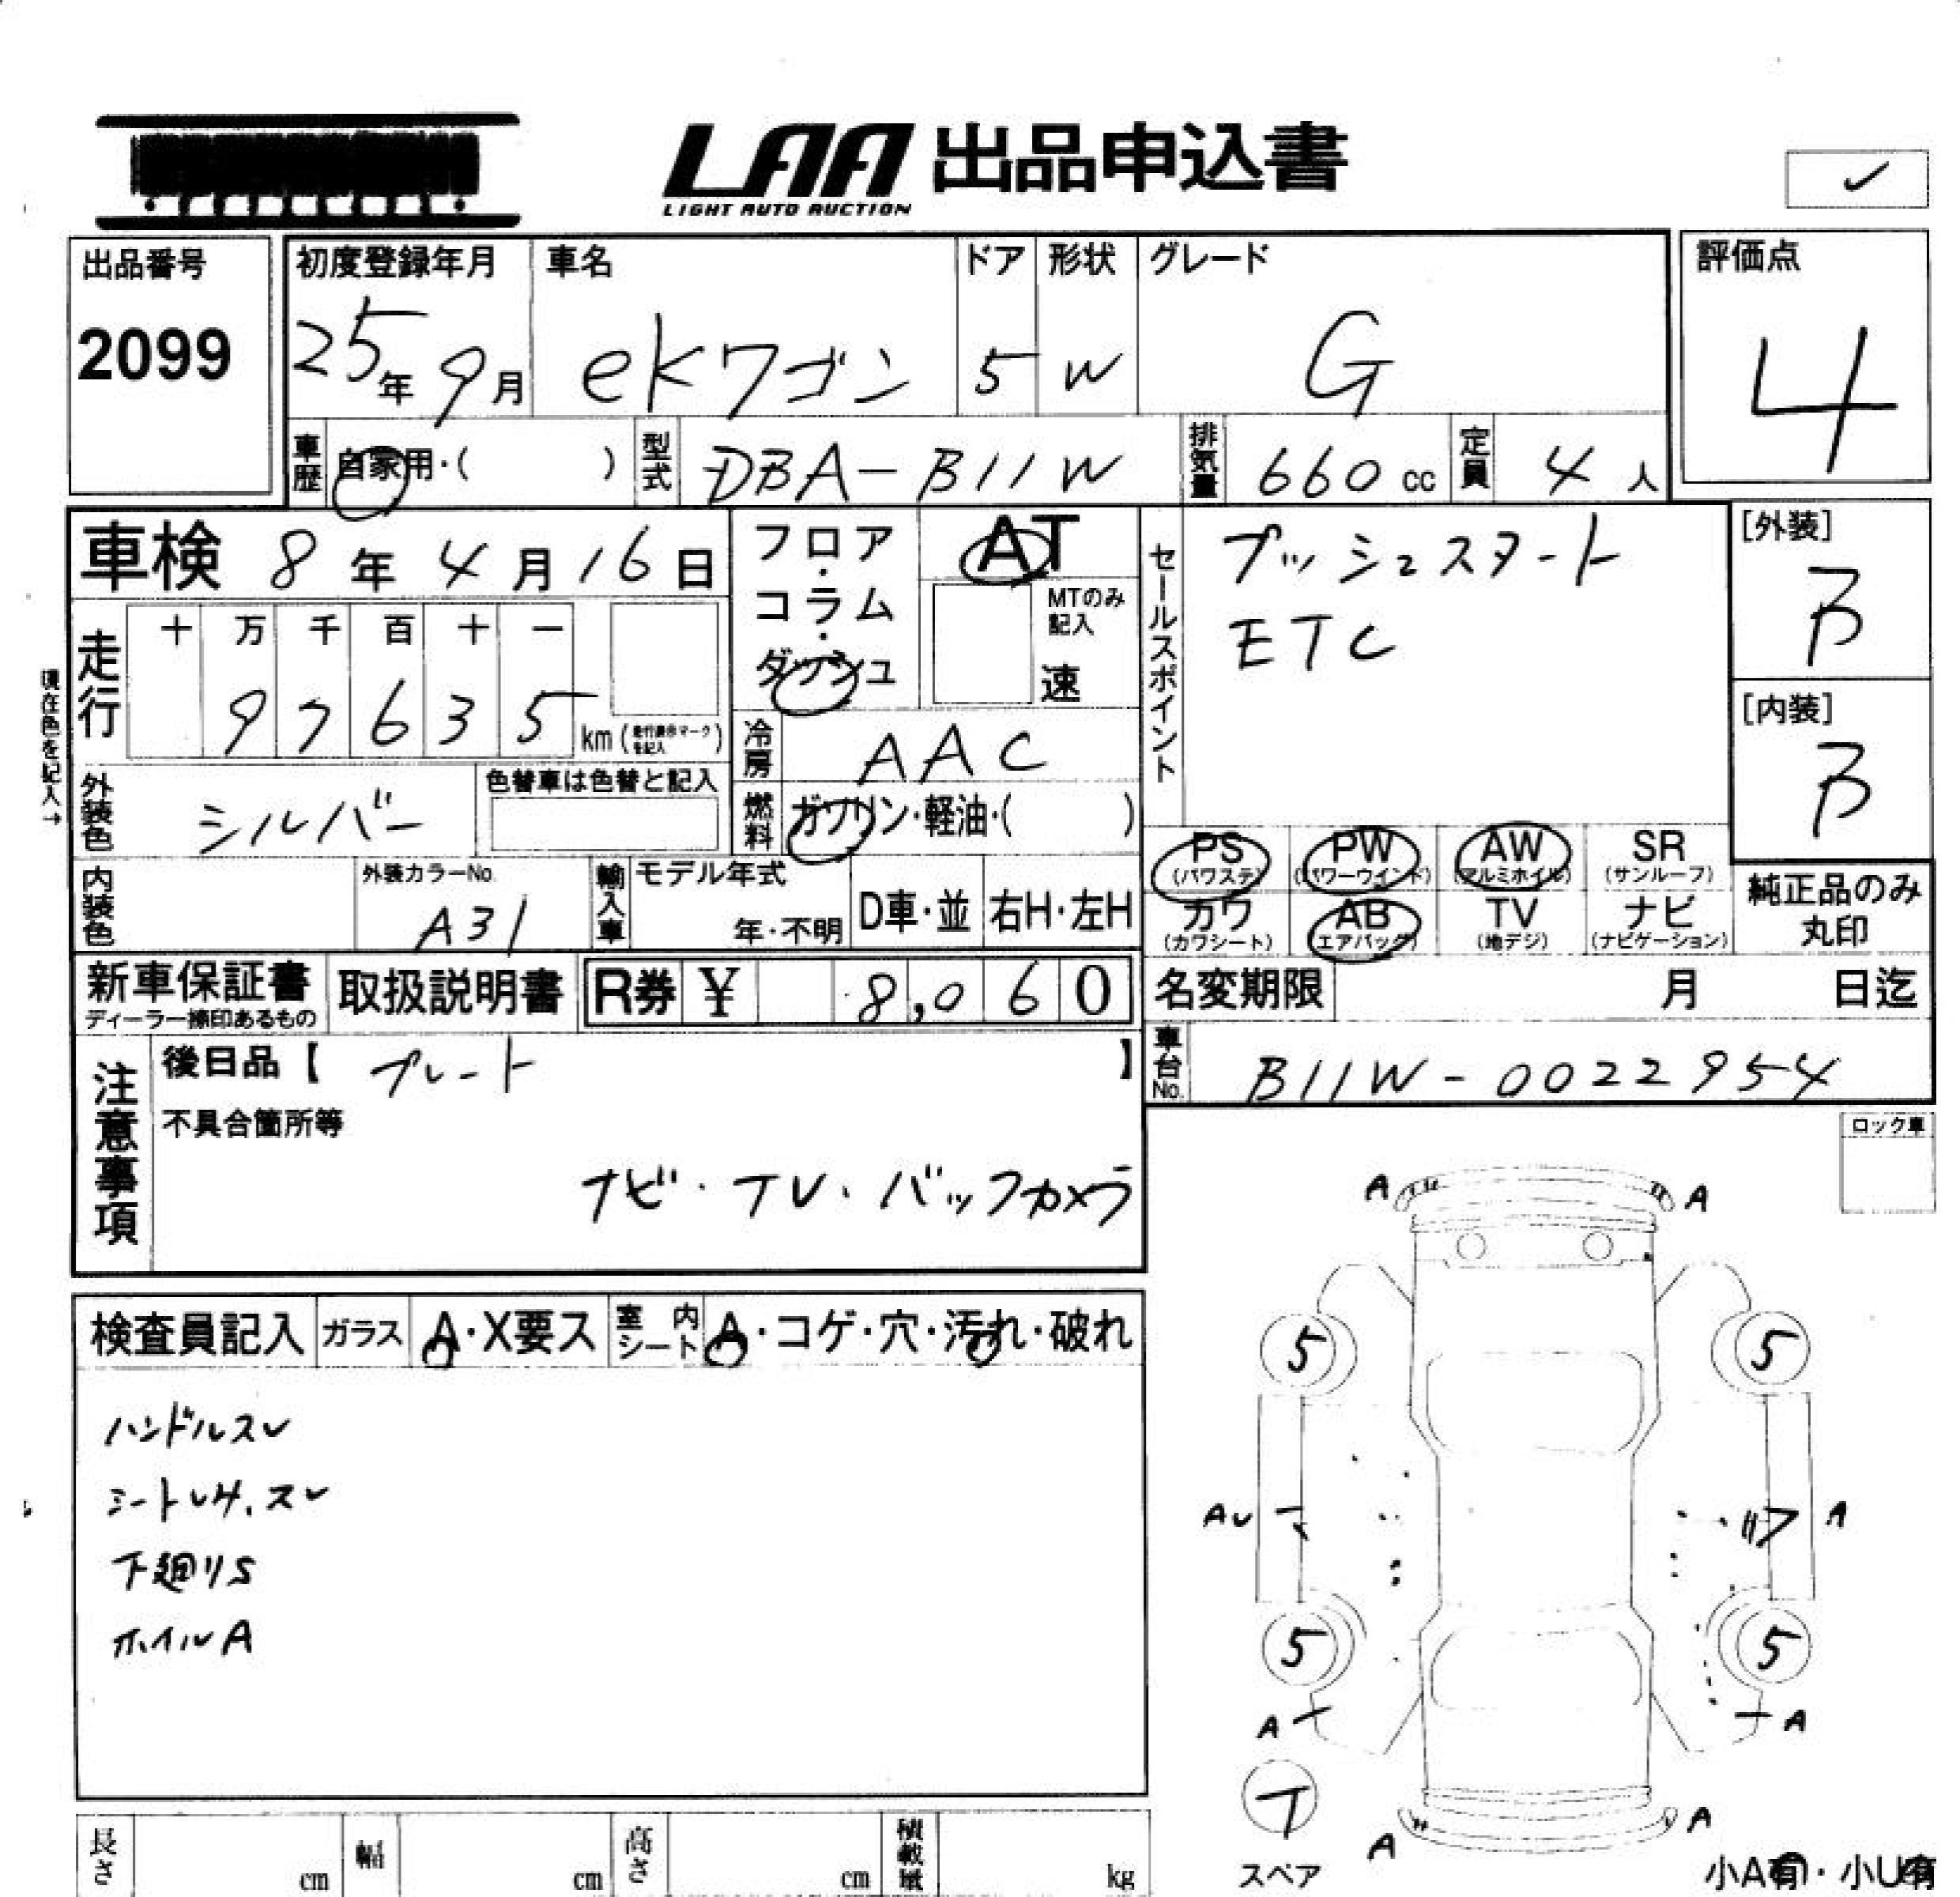 LAA 出品申込書
LIGHT AUTO AUCTION
✓
出品番号
2099
初度登録年月
25年9月
車名
eKワゴン
ドア
5
形状
W
グレード
G
評価点
4
車歴
自家用・( )
型式
DBA-B11W
排気量
660cc
定員
4人
車検 8年4月16日
フロア・コラム・ダッシュ
AT
MTのみ記入
速
セールスポイント
プッシュスタート
ETC
[外装]
B
[内装]
B
現在色を記入→
走行
十 万 千 百 十 一
9 7 6 3 5
km(走行表示マークを記入)
冷房
AAC
外装色
シルバー
色替車は色替と記入
燃料
ガソリン・軽油・( )
PS (パワステ)
PW (パワーウインド)
AW (アルミホイル)
SR (サンルーフ)
カワ (カワシート)
AB (エアバッグ)
TV (地デジ)
ナビ (ナビゲーション)
純正品のみ
丸印
内装色
外装カラーNo.
A31
輸入車
モデル年式
年・不明
D車・並
右H・左H
新車保証書
ディーラー捺印あるもの
取扱説明書
R券 ¥ 8,060
名変期限 月 日迄
車台No.
B11W-0022954
注意事項
後日品【 プレート 】
不具合箇所等
ナビ・TV・バックカメラ
ロック車
検査員記入
ガラス
A・X要ス
室内シート
A・コゲ・穴・汚れ・破れ
ハンドルスレ
シートレサ、スレ
下廻りS
ホイルA
A A
5 5
AU A
5 5
A A
T
スペア
A A
小A有・小U有
長さ cm
幅 cm
高さ cm
積載量 kg